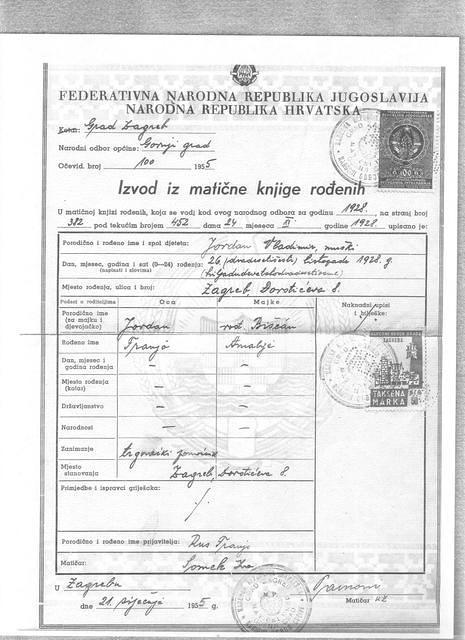 FEDERATIVNA NARODNA REPUBLIKA JUGOSLAVIJA
NARODNA REPUBLIKA HRVATSKA
Kotar: Grad Zagreb
Narodni odbor općine: Gornji grad
Očevid. broj 100 1955
Izvod iz matične knjige rođenih
U matičnoj knjizi rođenih, koja se vodi kod ovog narodnog odbora za godinu 1928. na stranj broj
382 pod tekućim brojem 452 dana 27 mjeseca XI godine 1928. upisano je:
Porodično i rođeno ime i spol djeteta: Jordan Vladimir, muški
Dan, mjesec, godina i sat (0—24) rođenja: 26. (dvadesetšestog) listopada 1928. g.
(napisati i slovima)
Mjesto rođenja, ulica i broj: Zagreb, Dorotićeva 8.
Podaci o roditeljima Oca Majke Naknadni upisi i bilješke:
Porodično ime (za majku i djevojačko) Jordan rođ. Bišćan
Rođeno ime Franjo Amalija
Dan, mjesec i godina rođenja — —
Mjesto rođenja (kotar) — —
Državljanstvo — —
Narodnost — —
Zanimanje trgovački pomoćnik
Mjesto stanovanja Zagreb, Dorotićeva 8.
Primjedbe i ispravci griješaka:
Porodično i rođeno ime prijavitelja: Rus Franjo
Matičar:
U Zagrebu
dne 21. siječnja 1955 g.
Matičar
100
ZAGREB
TAKSENA
MARKA